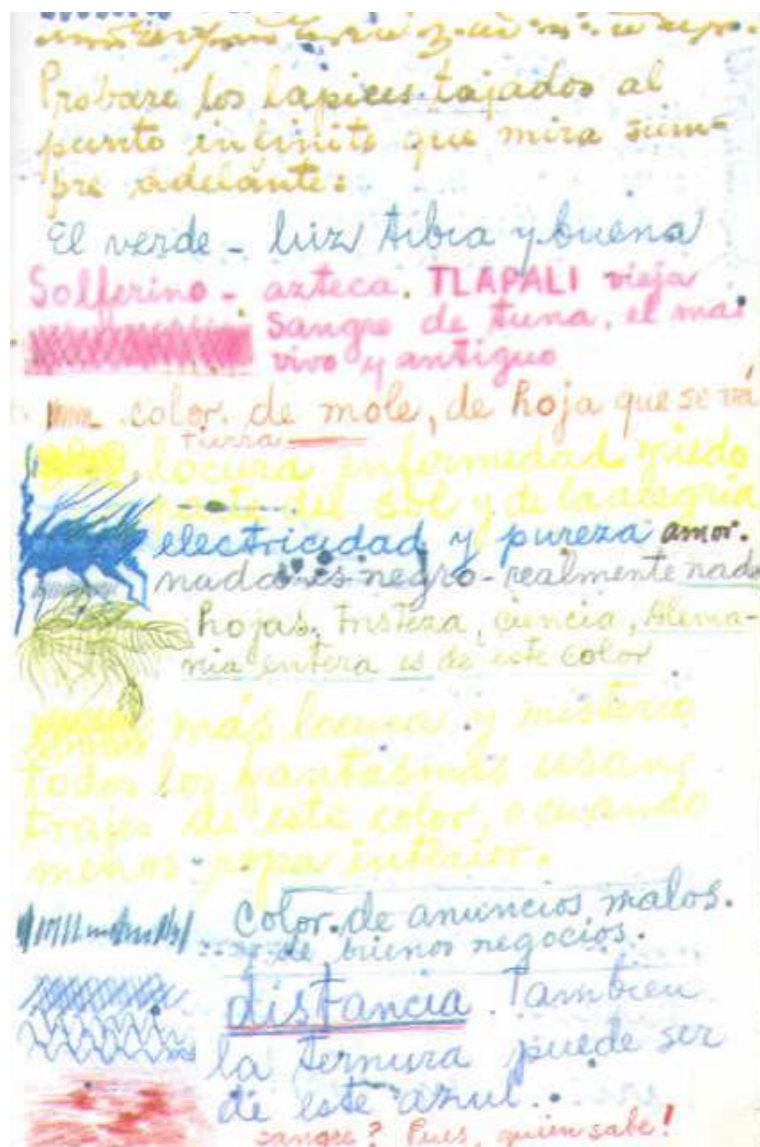 Probaré los lapices tajados al
punto infinito que mira siem-
pre adelante:
El verde - luz tibia y buena
Solferino - azteca. TLAPALI vieja
sangre de tuna, el mas
vivo y antiguo
color de mole, de hoja que se va
tierra
locura enfermedad miedo
parte del sol y de la alegria
electricidad y pureza amor.
nada es negro - realmente nada
hojas, tristeza, ciencia, Alema-
nia entera es de este color
más locura y misterio
todos los fantasmas usan
trajes de este color, o cuando
menos ropa interior.
color de anuncios malos.
y de buenos negocios.
distancia. Tambien
la ternura puede ser
de este azul.
sangre? Pues, quien sabe!